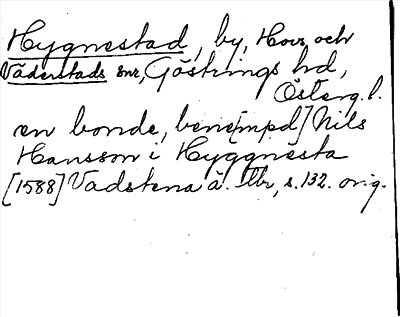 Hygnestad, by, Hovs och
Väderstads snr, Göstrings hd,
Österg. l.
en bonde, bene[mpd] Nils
Hansson i Hyggnesta
[1588] Vadstena ä. tbr, s. 132. orig.